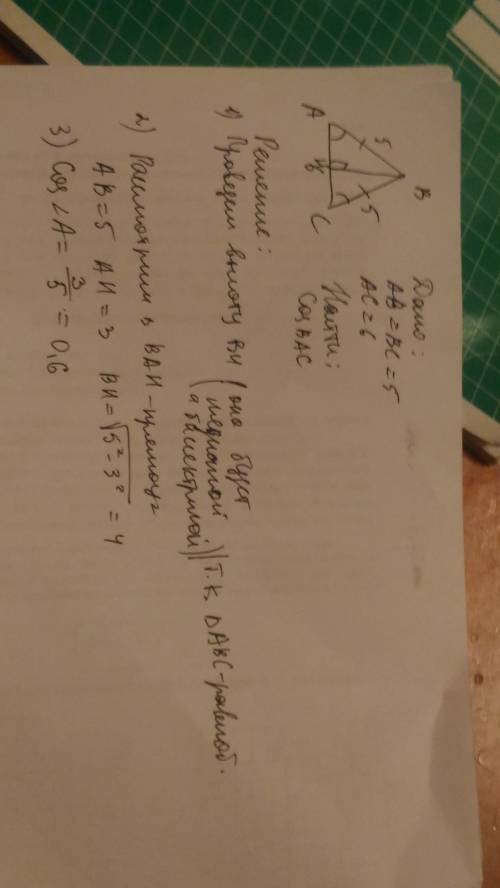 B
5 5
A C
Дано:
AB = BC = 5
AC = 6
Найти:
Cos BAC
Решение:
1) Проведем высоту BH (она будет медианой и биссектрисой) т.к. ΔABC - равноб.
2) Рассмотрим Δ BAH - прямоуг
AB = 5 AH = 3 BH = √5² - 3² = 4
3) Cos ∠A = 3/5 = 0,6